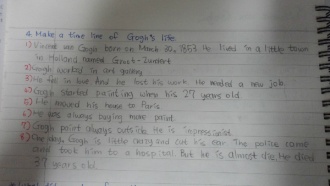 2. Make a time line of Gogh's life.
1) Vincent van Gogh born on March 30, 1853. He lived in a little town
in Holland named Groot-Zundert
2) Gough worked in art
3) He lost his work. He needed a new job.
4) Gogh started painting when his 27 years old
5) He moved his house to Paris
6) He was always buying more paint.
7) Gogh paint always outside He is inpressionist
8) One day, Gogh is little crazy and cut his ear. The police come
and took him to a hospital. But he is almost die. He died
37 years old.